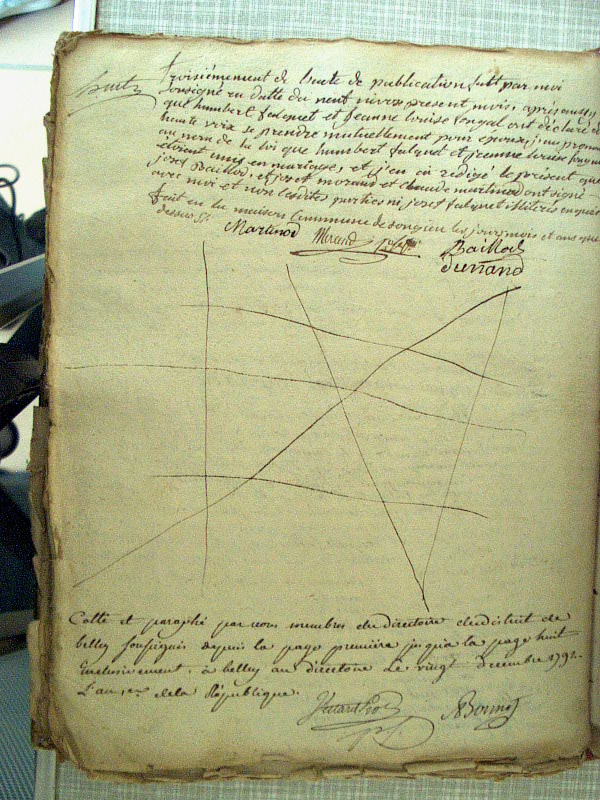 huit
troisiémement de lacte de publication fait par moi
soussigné en datte du neuf nivose present mois, après aussy
que humbert falquet et jeanne louise fongal ont déclaré a
haute voix se prendre mutuellement pour époux, j'ai prononcé
au nom de la loi que humbert falquet et jeanne louise
etoient unis en mariage, et j'en ai rédigé le present que
josef Baillod, et josef morand et claude martinod ont signé
avec moi et non lesdites parties ni josef falquet illitérés enquis
fait en la maison Commune de songieu les jour mois et ans que
dessus
Martinod Morand Baillod
Durrand
Cotté et paraphé par nous membres du directoire du district de
belley soussignés depuis la page première jusqu'a la page huit
inclusivement. à belley au directoire Le vingt décembre 1792.
L'an 1er de la République.